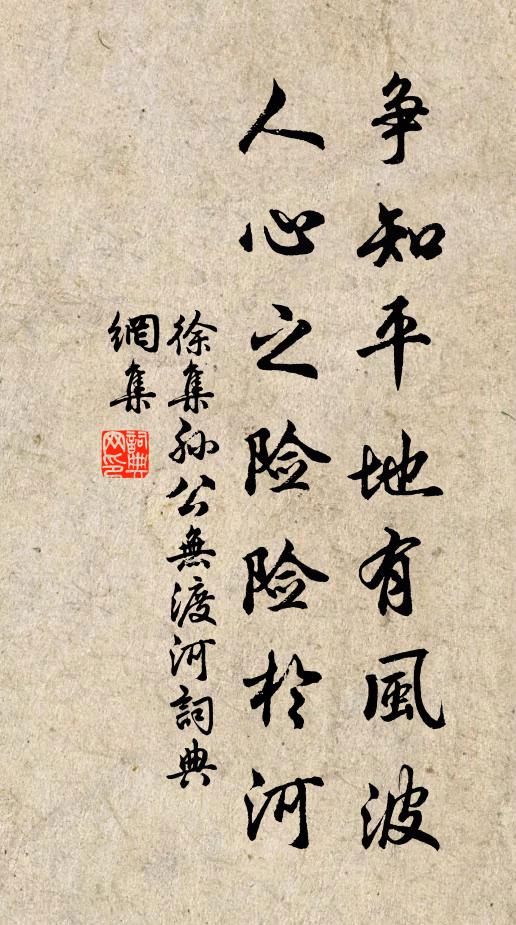 争知平地有風波
人心之险险於河
徐集孙公無渡河詞典
網集
詞典網印